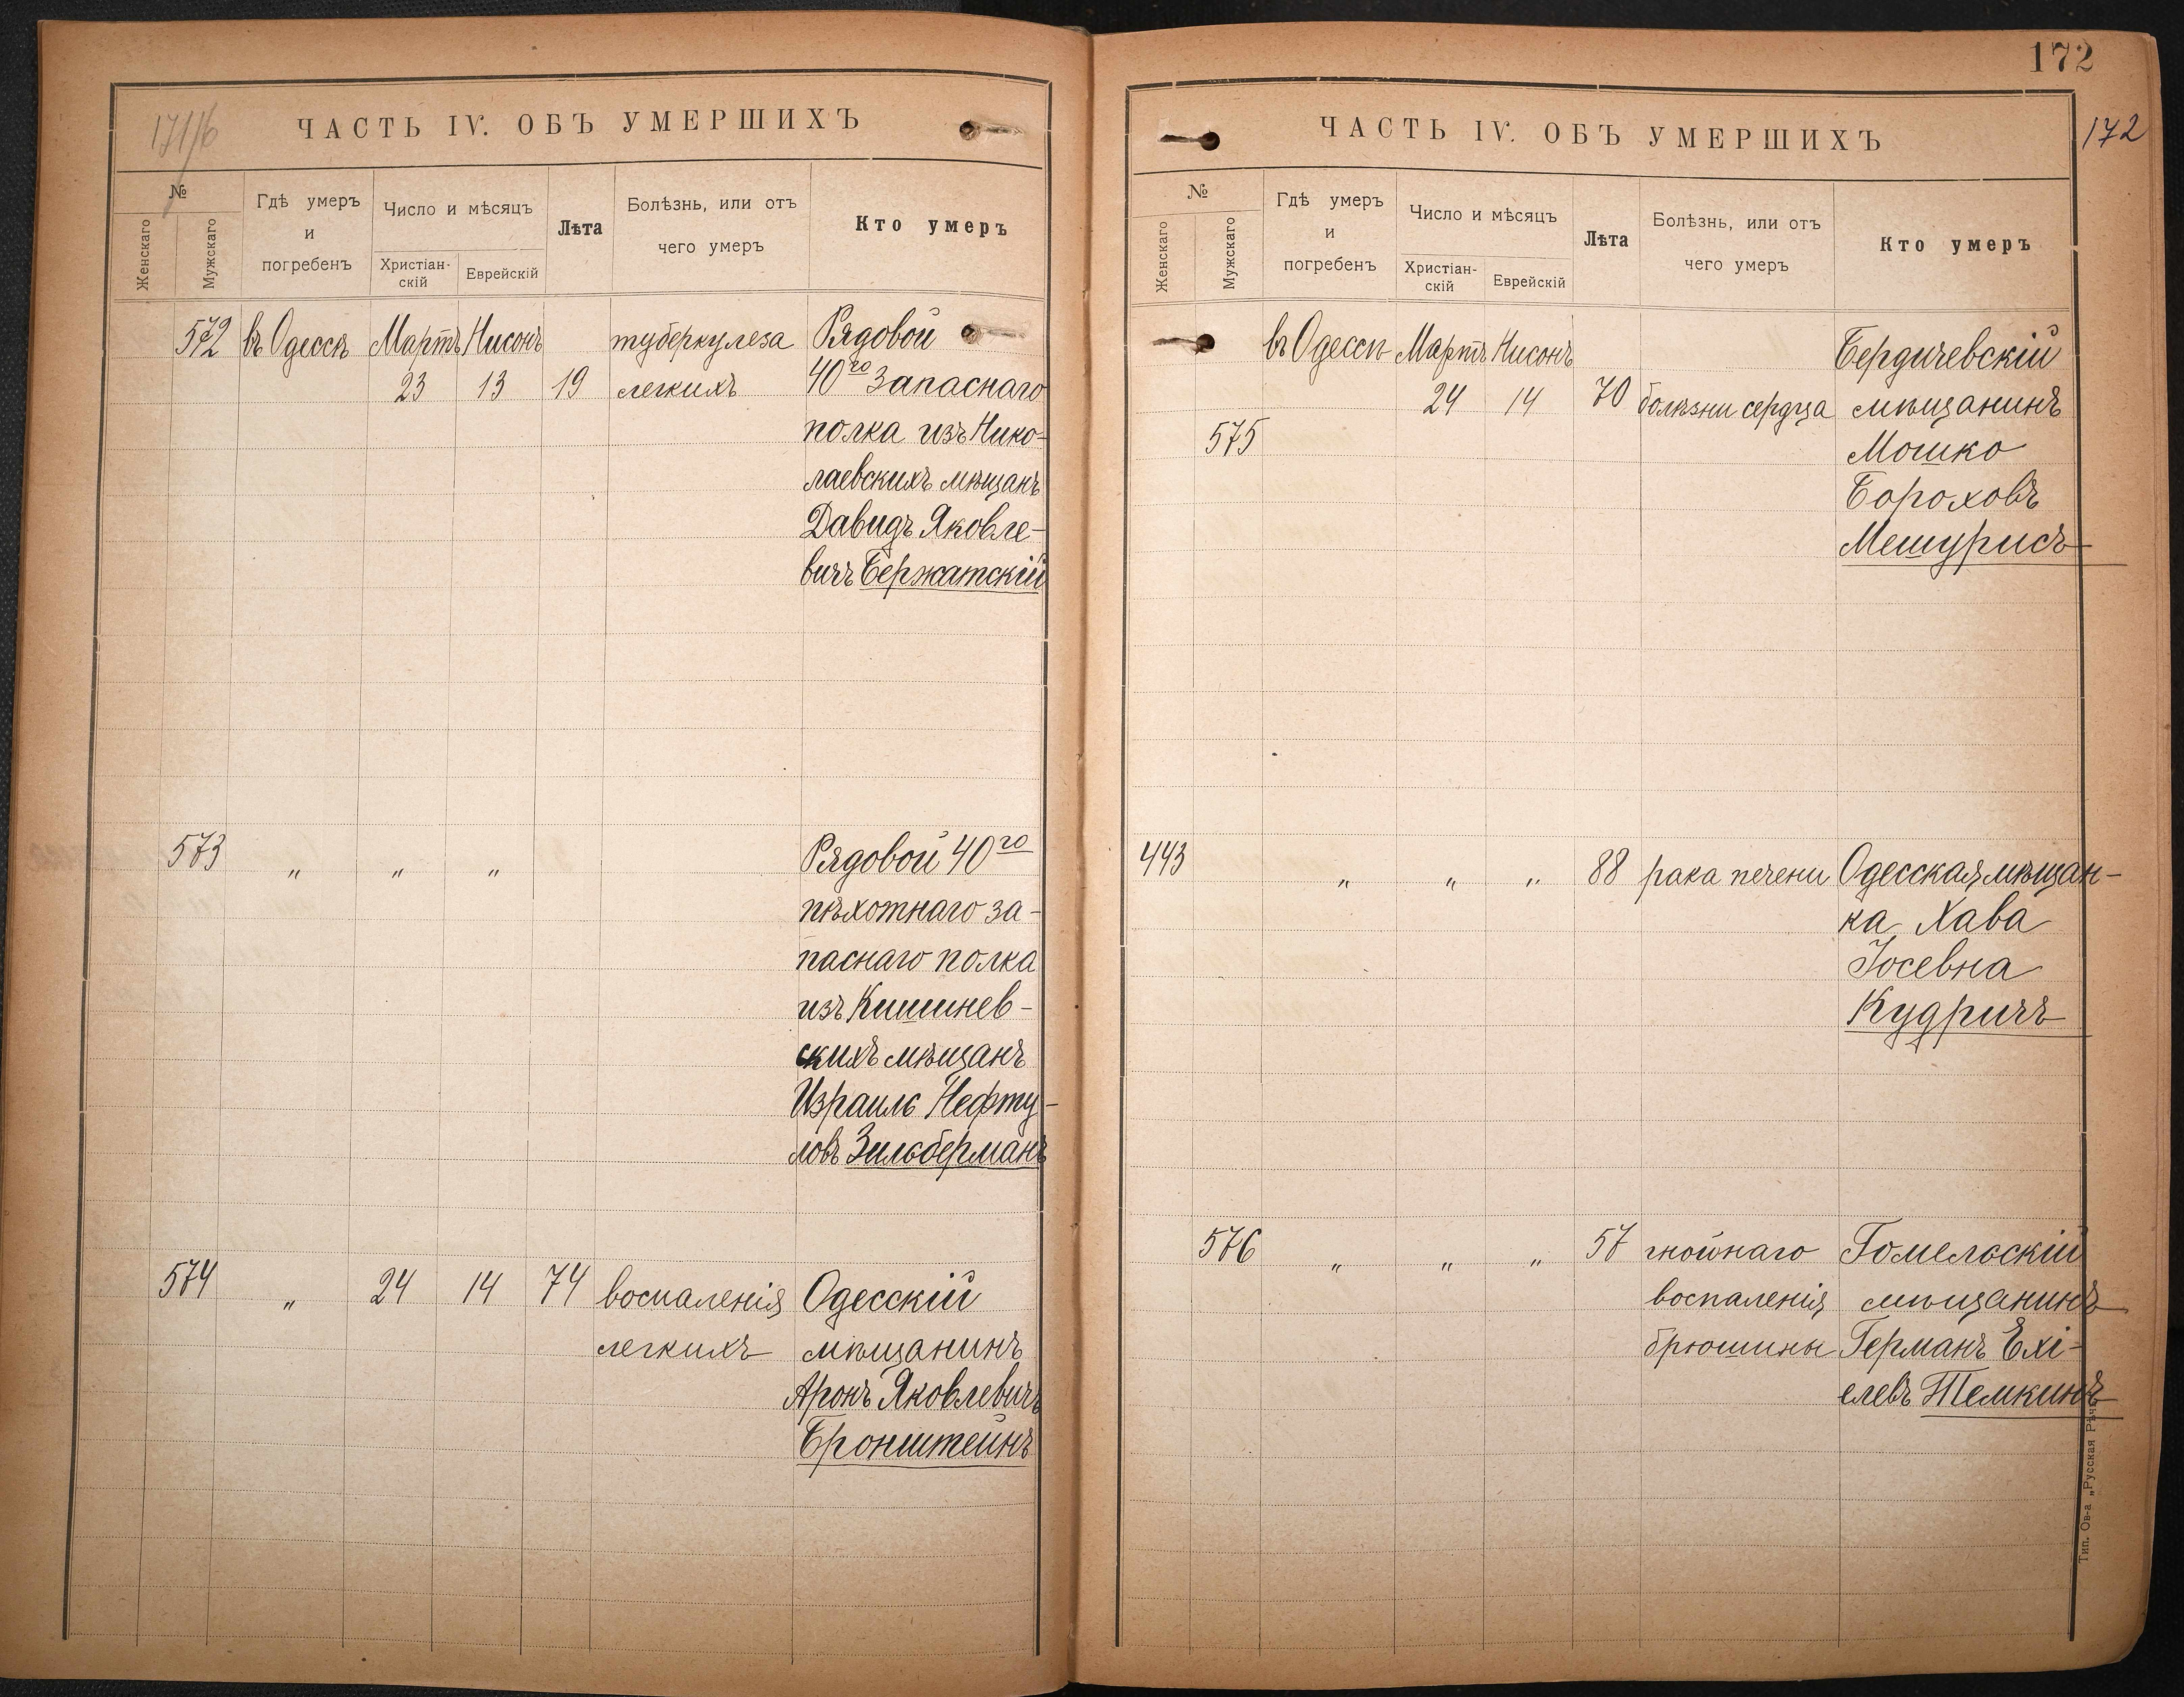 171/6
ЧАСТЬ IV. ОБЪ УМЕРШИХЪ
№
Женскаго
Мужскаго
Гдѣ умеръ
и
погребенъ
Число и мѣсяцъ
Христіан-
скій
Еврейскій
Лѣта
Болѣзнь, или отъ
чего умеръ
Кто умеръ
572 въ Одессѣ Мартъ Нисонъ туберкулеза Рядовой
23 13 19 легкихъ 40го Запаснаго
полка изъ Нико-
лаевскихъ мѣщанъ
Давидъ Яковле-
вичъ Бержатскій
573 „ „ „ Рядовой 40го
пѣхотнаго за-
паснаго полка
изъ Кишинев-
скихъ мѣщанъ
Израиль Нефту-
ловъ Зильберманъ
574 „ 24 14 74 воспаленія Одесскій
легкихъ мѣщанинъ
Аронъ Яковлевичъ
Бронштейнъ
172
172
ЧАСТЬ IV. ОБЪ УМЕРШИХЪ
№
Женскаго
Мужскаго
Гдѣ умеръ
и
погребенъ
Число и мѣсяцъ
Христіан-
скій
Еврейскій
Лѣта
Болѣзнь, или отъ
чего умеръ
Кто умеръ
въ Одессѣ Мартъ Нисонъ Бердичевскій
24 14 70 болѣзни сердца мѣщанинъ
575 Мошко
Бороховъ
Мешурисъ
443 „ „ „ 88 рака печени Одесская мѣщан-
ка Хава
Іосевна
Кудричъ
576 „ „ „ 57 гнойнаго Гомельскій
воспаленія мѣщанинъ
брюшины Германъ Ехі-
елевъ Темкинъ
Тип. Ов-а „Русская Рѣчь